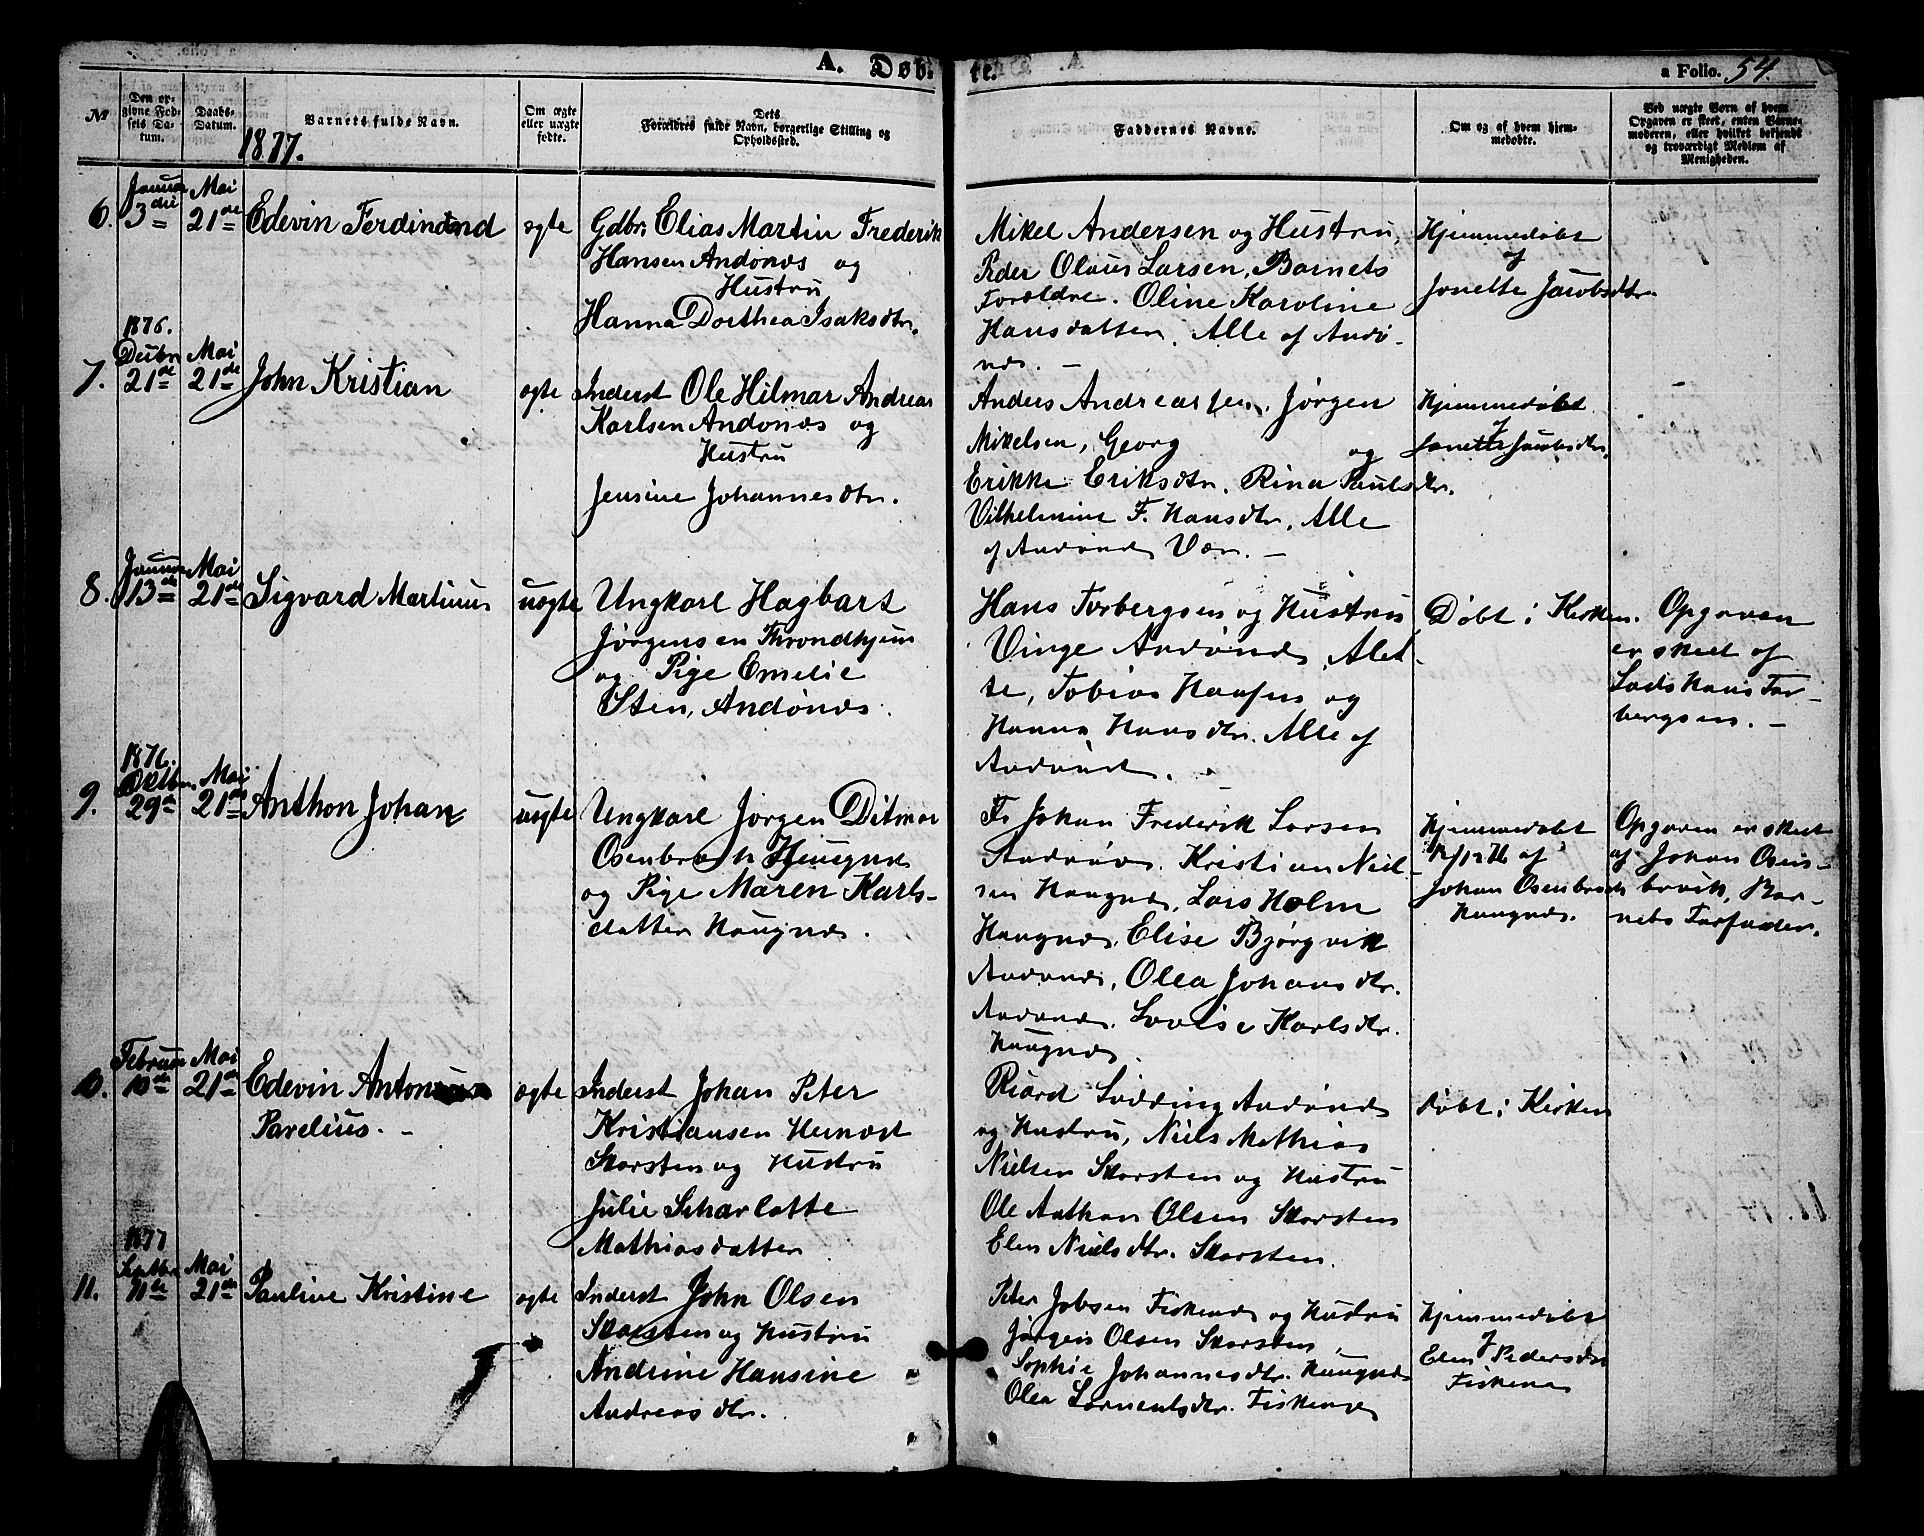 A. Døb-
te.
a Folio. 54.
№
Den ergivne Fødsels Datum.
Daabs-Datum.
Barnets fulde Navn.
1877.
Om ægte eller uægte fødte.
Dets Forældres fulde Navn, borgerlige Stilling og Opholdssted.
Faddernes Navne.
Om og af hvem hjemmedøbte.
Ved uægte Børn af hvem Opgaven er skeet, enten Barnemoderen, eller hvilket bekjendt og troværdigt Medlem af Menigheden.
6.
Januar 3die
Mai 21de
Edevin Ferdinand
ægte
Gdbr. Elias Martin Frederik
Hansen Andønæs og
Hustru
Hanna Dorthea Isaksdtr.
Mikel Andersen og Hustru,
Peder Olaus Larsen, Barnets
Forældre. Oline Karoline
Hansdatter. Alle af Andø-
næs. -
Hjemmedøbt
af
Jonette Jacobsdtr.
7.
1876. Decbr 21de
Mai 21de
John Kristian
ægte
Inderst Ole Hilmar Andreas
Karlsen Andønæs og
Hustru
Jensine Johannesdtr.
Anders Andreassen, Jørgen
Mikelsen, Georg og
Erikke Eriksdtr. Rina Paulsdtr.
Vilhelmine F. Hansdtr. Alle
af Andønæs Vær. -
Hjemmedøbt
af
Jonette Jacobsdtr.
8.
Januar 13de
Mai 21de
Sigvard Martinus
uægte
Ungkarl Hagbart
Jørgensen Throndhjem
og Pige Emelie
Sten, Andønæs.
Hans Torbergsen og Hustru
Vinge Andønæs, Alet-
te, Tobias Hansen og
Hanna Hansdtr. Alle af
Andønæs.
Døbt i Kirken.
Opgaven
er skeet af
Lods Hans Tor-
bergsen. -
9.
1876. Oktbr. 29de
Mai 21de
Anthon Johan
uægte
Ungkarl Jørgen Ditmar
Osenbroch Haugnæs
og Pige Maren Karls-
datter Haugnæs.
Johan Frederik Larsen
Andønæs. Kristian Niel-
sen Haugnæs, Lars Holm
Haugnæs, Elise Bjørgvik
Andønæs, Olea Johansdtr.
Andønæs. Lovise Karlsdtr.
Haugnæs.
Hjemmedøbt
12/12 76 af
Johan Osenbroch
Haugnæs.
Opgaven er skeet
af Johan Osen-
brock, Bar-
nets Farfader.
10.
Februar 10de
Mai 21de
Edevin Antonius
Parelius. -
ægte
Inderst Johan Peter
Kristiansen
Skorsten og Hustru
Julie Scharlotte
Mathiasdatter
Ricard Lødding Andønæs
og Hustru, Niels Mathias
Nielsen Skorsten og Hustru
Ole Anthon Olsen Skorsten
Elen Nielsdtr. Skorsten.
Døbt i Kirken
11.
1877 Septbr 11te
Mai 21de
Pauline Kristine
ægte
Inderst John Olsen
Skorsten og Hustru
Andrine Hansine
Andreasdtr.
Peter Jobsen Fiskenæs og Hustru
Jørgen Olsen Skorsten,
Sophie Johannesdtr. Haugnæs
Olea Lorentsdtr. Fiskenæs
Hjemmedøbt
af
Elen Pedersdtr
Fiskenæs